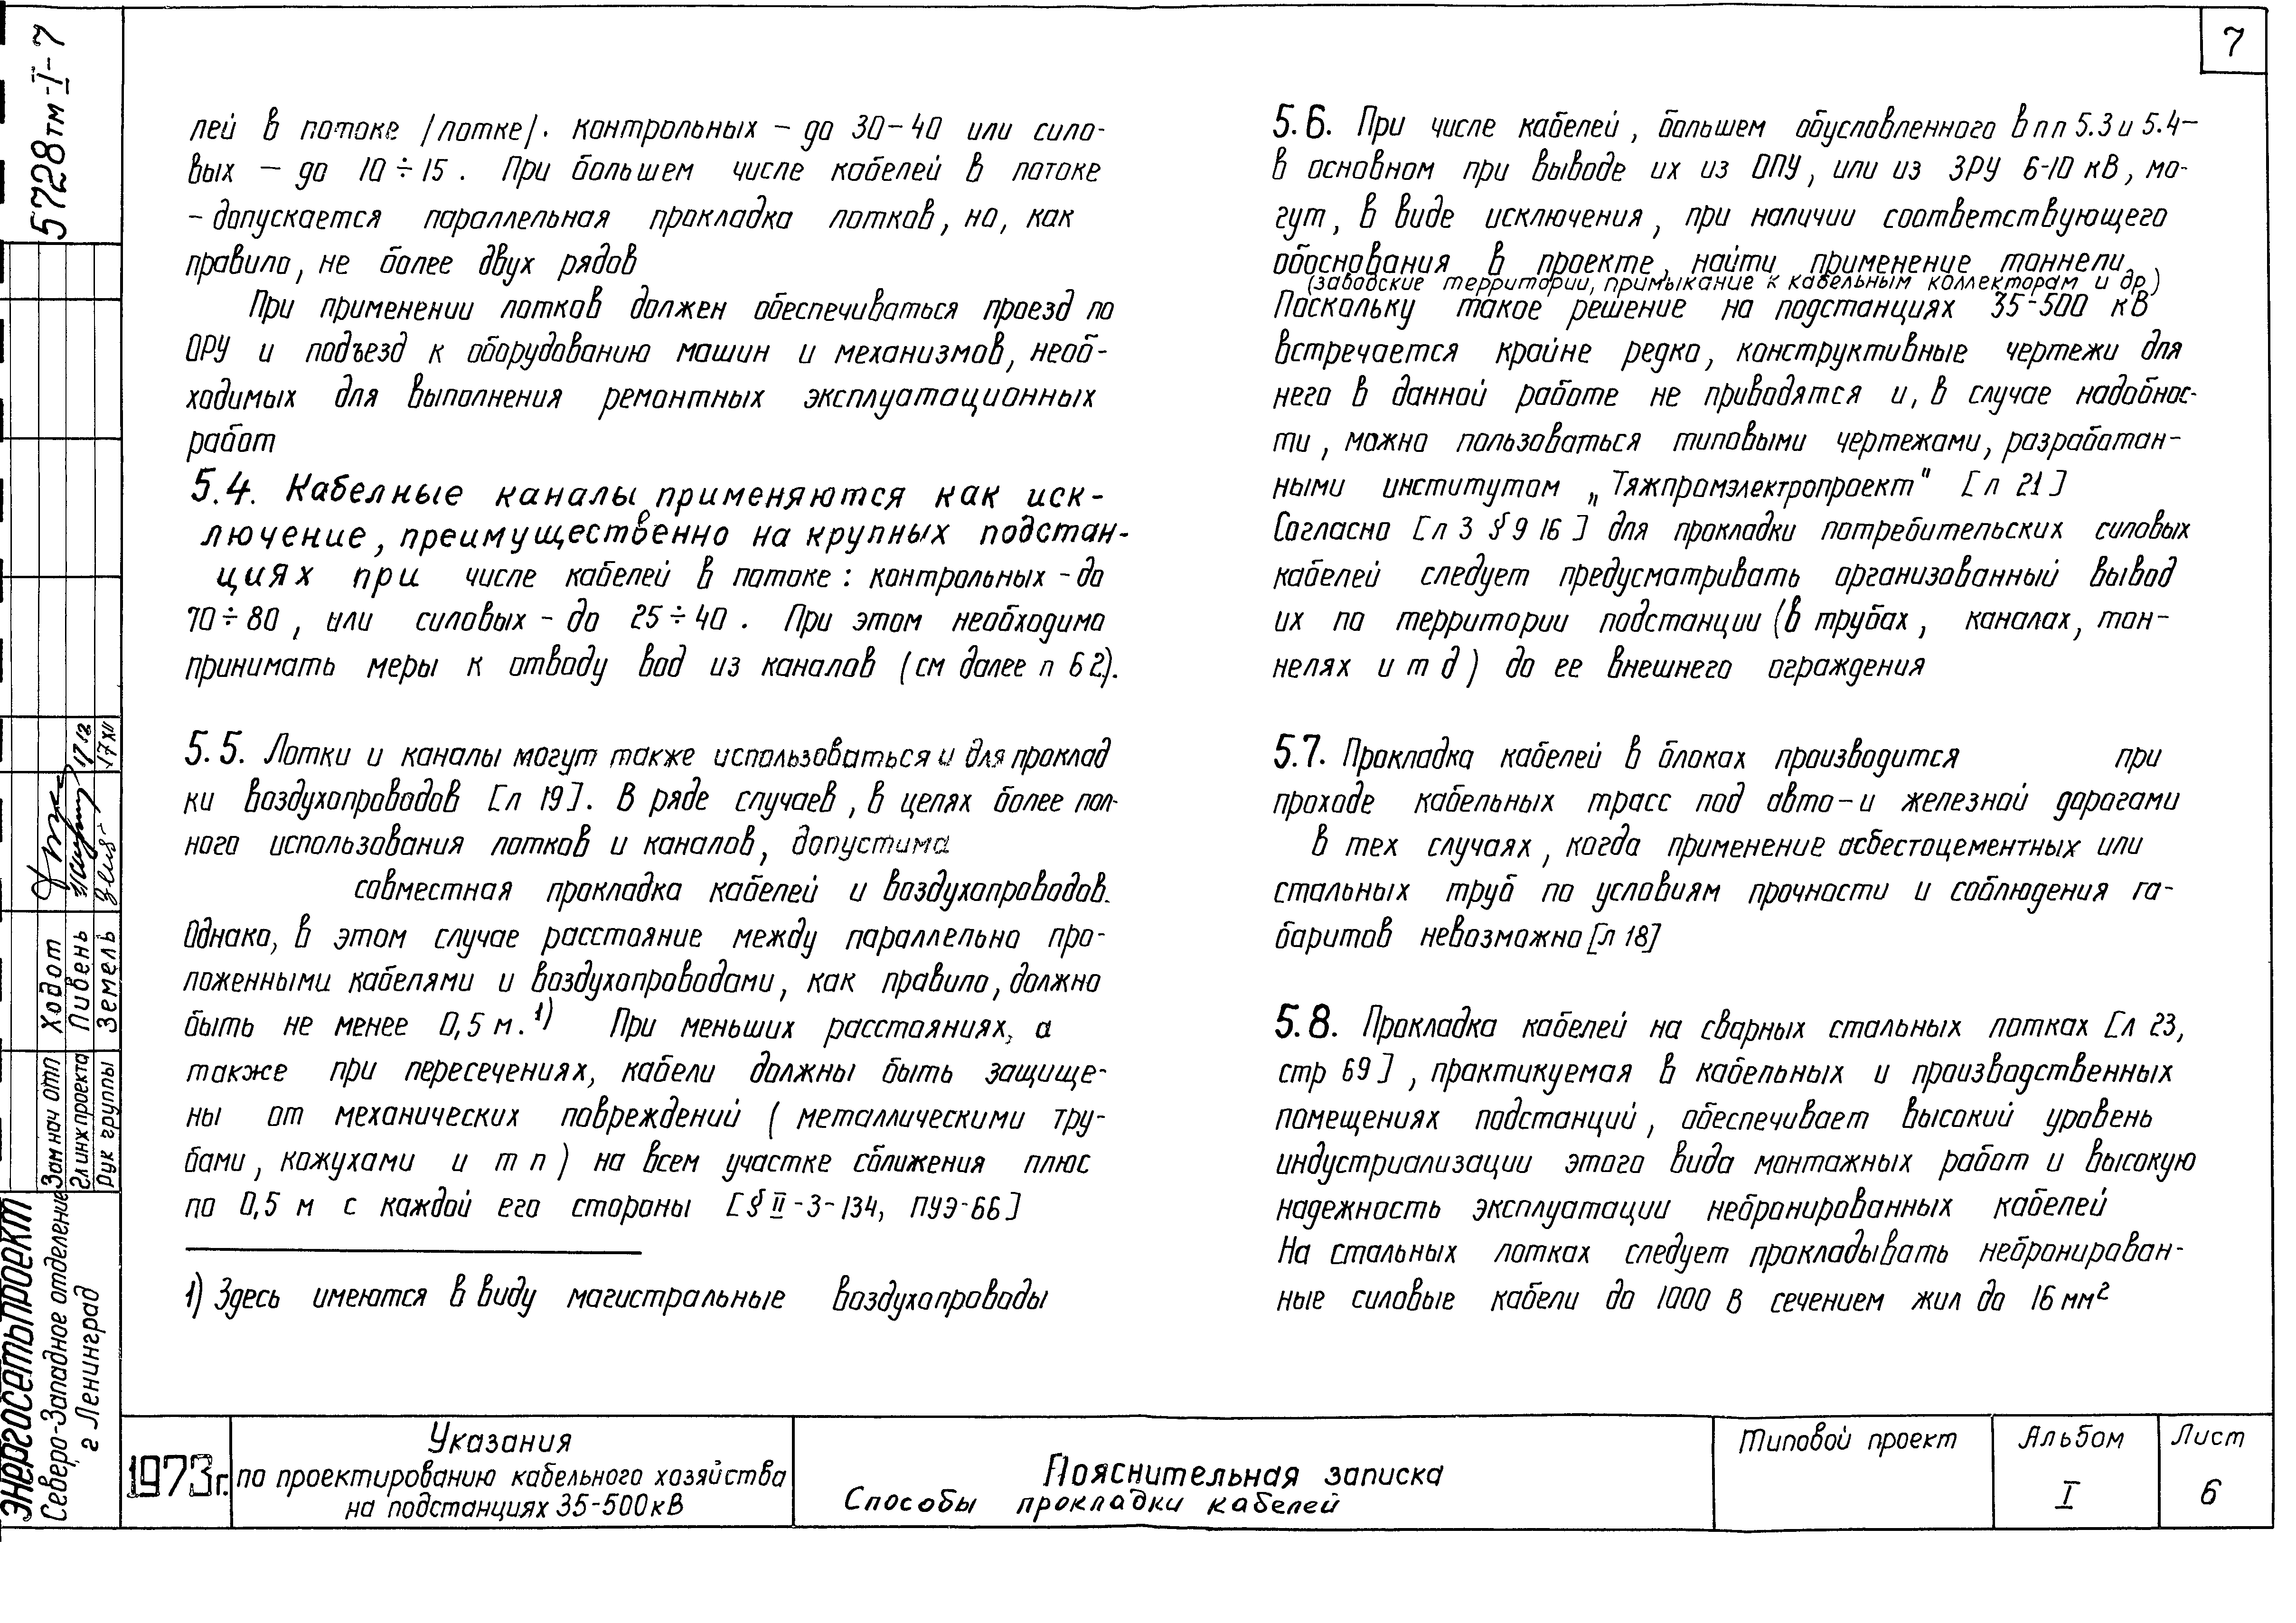 7
5728тм-I-7
лей в потоке /лотке/. контрольных – до 30–40 или сило-
вых – до 10÷15. При большем числе кабелей в потоке
– допускается параллельная прокладка лотков, но, как
правило, не более двух рядов
При применении лотков должен обеспечиваться проезд по
ОРУ и подъезд к оборудованию машин и механизмов, необ-
ходимых для выполнения ремонтных эксплуатационных
работ
5.4. Кабелные каналы применяются как иск-
лючение, преимущественно на крупных подстан-
циях при числе кабелей в потоке: контрольных – до
70÷80, или силовых – до 25÷40. При этом необходимо
принимать меры к отводу вод из каналов (см далее п 6 2).
5.5. Лотки и каналы могут также использоваться и для проклад
ки воздухопроводов [л 19]. В ряде случаев, в целях более пол-
ного использования лотков и каналов, допустима
совместная прокладка кабелей и воздухопроводов.
Однако, в этом случае расстояние между параллельно про-
ложенными кабелями и воздухопроводами, как правило, должно
быть не менее 0,5 м.1) При меньших расстояниях, а
также при пересечениях, кабели должны быть защище-
ны от механических повреждений (металлическими тру-
бами, кожухами и т п) на всем участке сближения плюс
по 0,5 м с каждой его стороны [§ II-3-134, ПУЭ-66]
1) Здесь имеются в виду магистральные воздухопроводы
5.6. При числе кабелей, большем обусловленного в пп 5.3 и 5.4–
в основном при выводе их из ОПУ, или из ЗРУ 6-10 кВ, мо-
гут, в виде исключения, при наличии соответствующего
обоснования в проекте, найти применение тоннели
(заводские территории, примыкание к кабельным коллекторам и др)
Поскольку такое решение на подстанциях 35-500 кВ
встречается крайне редко, конструктивные чертежи для
него в данной работе не приводятся и, в случае надобнос-
ти, можно пользоваться типовыми чертежами, разработан-
ными институтом „Тяжпромэлектропроект" [л 21]
Согласно [л 3 § 9 16] для прокладки потребительских силовых
кабелей следует предусматривать организованный вывод
их по территории подстанции (в трубах, каналах, тон-
нелях и т д) до ее внешнего ограждения
5.7. Прокладка кабелей в блоках производится при
проходе кабельных трасс под авто- и железной дорогами
в тех случаях, когда применение асбестоцементных или
стальных труб по условиям прочности и соблюдения га-
баритов невозможно [л 18]
5.8. Прокладка кабелей на сварных стальных лотках [л 23,
стр 69], практикуемая в кабельных и производственных
помещениях подстанций, обеспечивает высокий уровень
индустриализации этого вида монтажных работ и высокую
надежность эксплуатации небронированных кабелей
На стальных лотках следует прокладывать небронирован-
ные силовые кабели до 1000 В сечением жил до 16 мм²
Зам нач ОТП Ходот
Гл инж проекта Пивень 17 12
Рук группы Земель 17 XII
ЭНЕРГОСЕТЬПРОЕКТ
Северо-Западное отделение
г Ленинград
1973г.
Указания
по проектированию кабельного хозяйства
на подстанциях 35-500кВ
Пояснительная записка
Способы прокладки кабелей
Типовой проект
Альбом
I
Лист
6